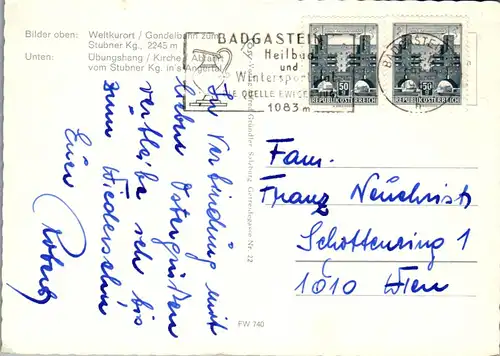 Bilder oben: Weltkurort / Gondelbahn zum
Stubner Kg., 2245 m
Unten: Übungshang / Kirche / Abfahrt
vom Stubner Kg. in's Angertal
BADGASTEIN
Heilbad
und
Wintersportplatz
QUELLE EWIGER
1083 m
BADGASTEIN
50
50
REPUBLIK ÖSTERREICH
REPUBLIK ÖSTERREICH
In Verbindung mit
lieben Ostergrüßen
verbleibe ich bis
zum Wiedersehn
Euer Robert
Gründler Salzburg Gstättengasse Nr. 22
Fam.
Franz Neuchrist
Schottenring 1
1010 Wien
FW 740